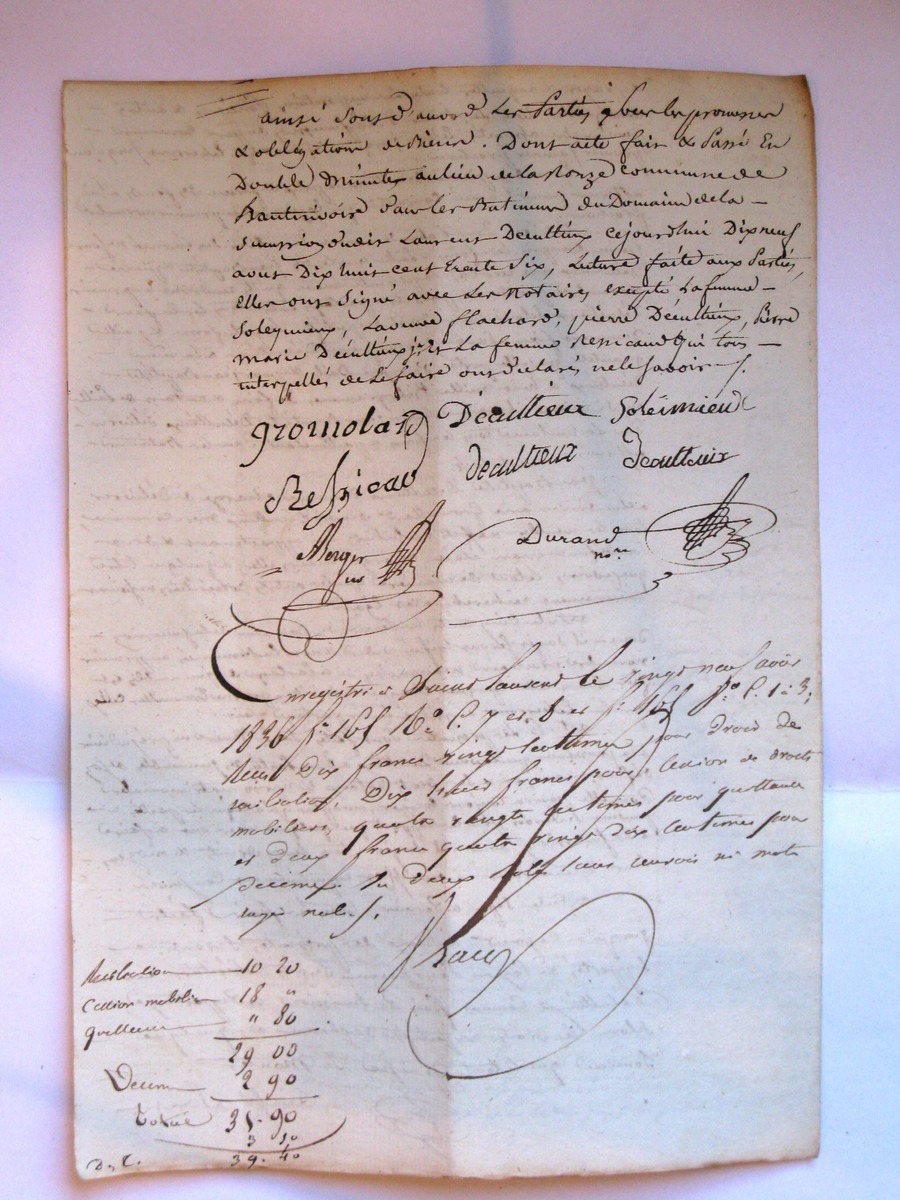 ainsi sont d'accord Les Parties sous les promesses
& obligations de Biens. Dont acte fait & Passé En
Double Minutes au lieu de la Ronze commune de
Hauterivoire dans les Batiments du Domaine de la
succession dudit Laurent Décultieux cejourd'hui Dix neuf
aout Dix huit cent trente Six, Lecture faite aux Parties
Elles ont Signé avec Les Notaires excepté La femme
Soleymieux, La veuve flachard, pierre Décultieux, Pierre
marie Décultieux jne & La femme Ressicaud Qui tous
interpellés de Le faire ont déclarés ne le Savoir /.
gromolard Décultieux Soleimieux
Ressicaud decultieux Decultieux
Durand
nore
Enregistré à Saint Laurent le vingt neuf août
1836 fo 165 Vo C. 7 et 8 et fo 166 Ro C. 1 à 3;
Reçu Dix francs vingt centimes pour droit de
Dix huit francs pour cession de droits
mobiliers, quatre vingts centimes pour quittance
et deux francs quatre vingt dix centimes pour
décime. En deux rôles sans renvois ni mots
rayé nul /.
10 20
Cession mobilière 18 "
Quittance " 80
29 00
Décime 2 90
Total 31.90
39.40